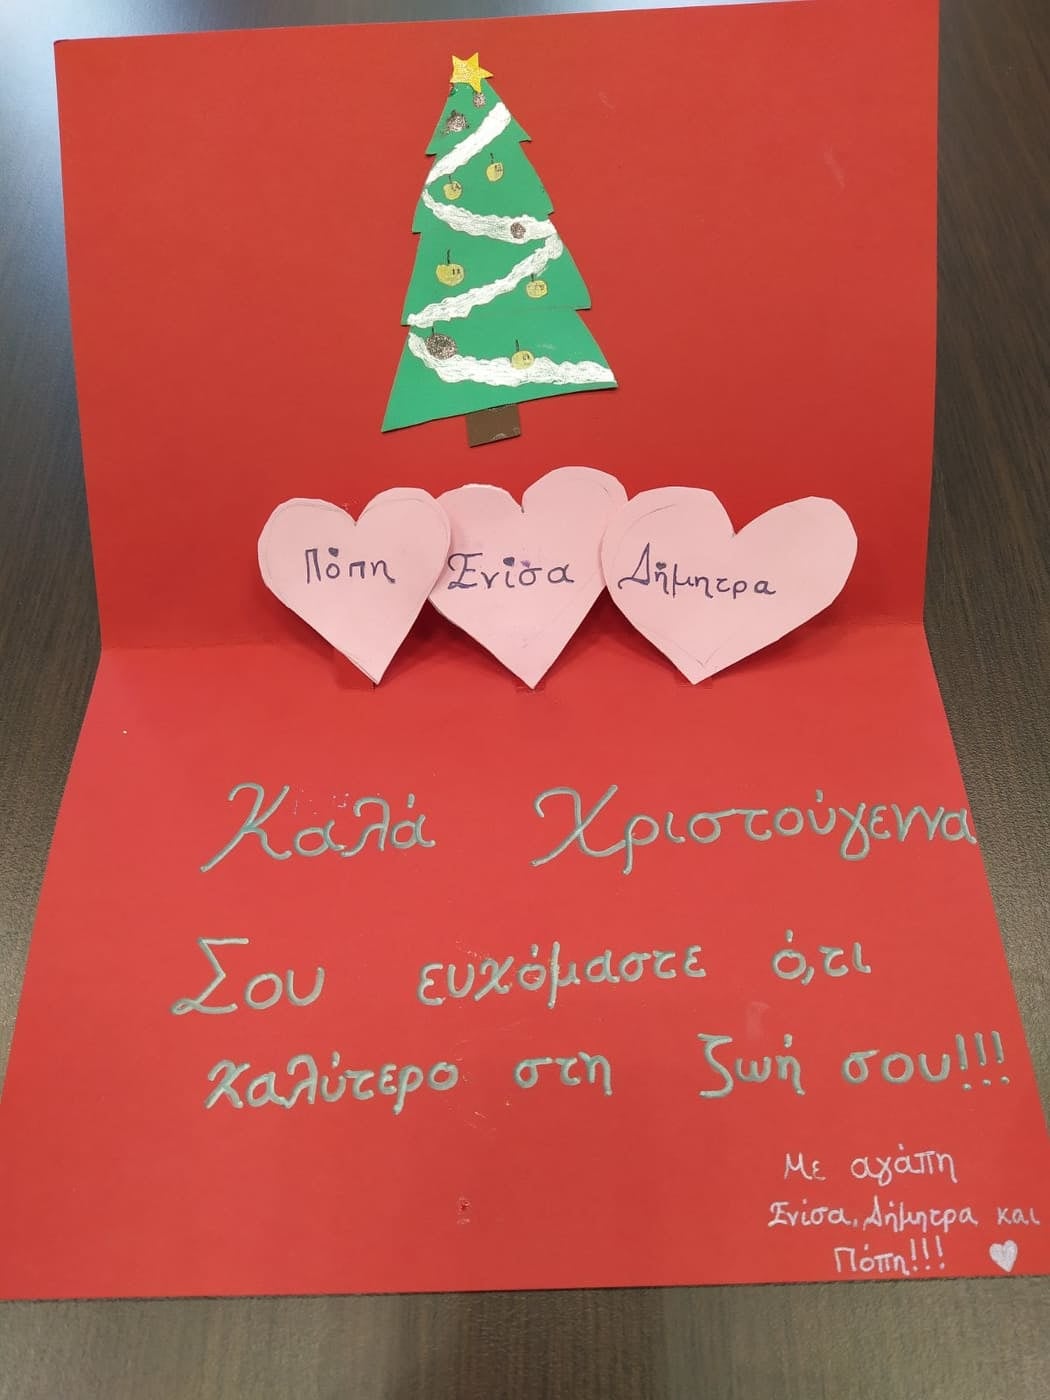 Πόπη Ένισα Δήμητρα
Καλά Χριστούγεννα
Σου ευχόμαστε ό,τι
καλύτερο στη ζωή σου!!!
Με αγάπη
Ένισα, Δήμητρα και
Πόπη!!!